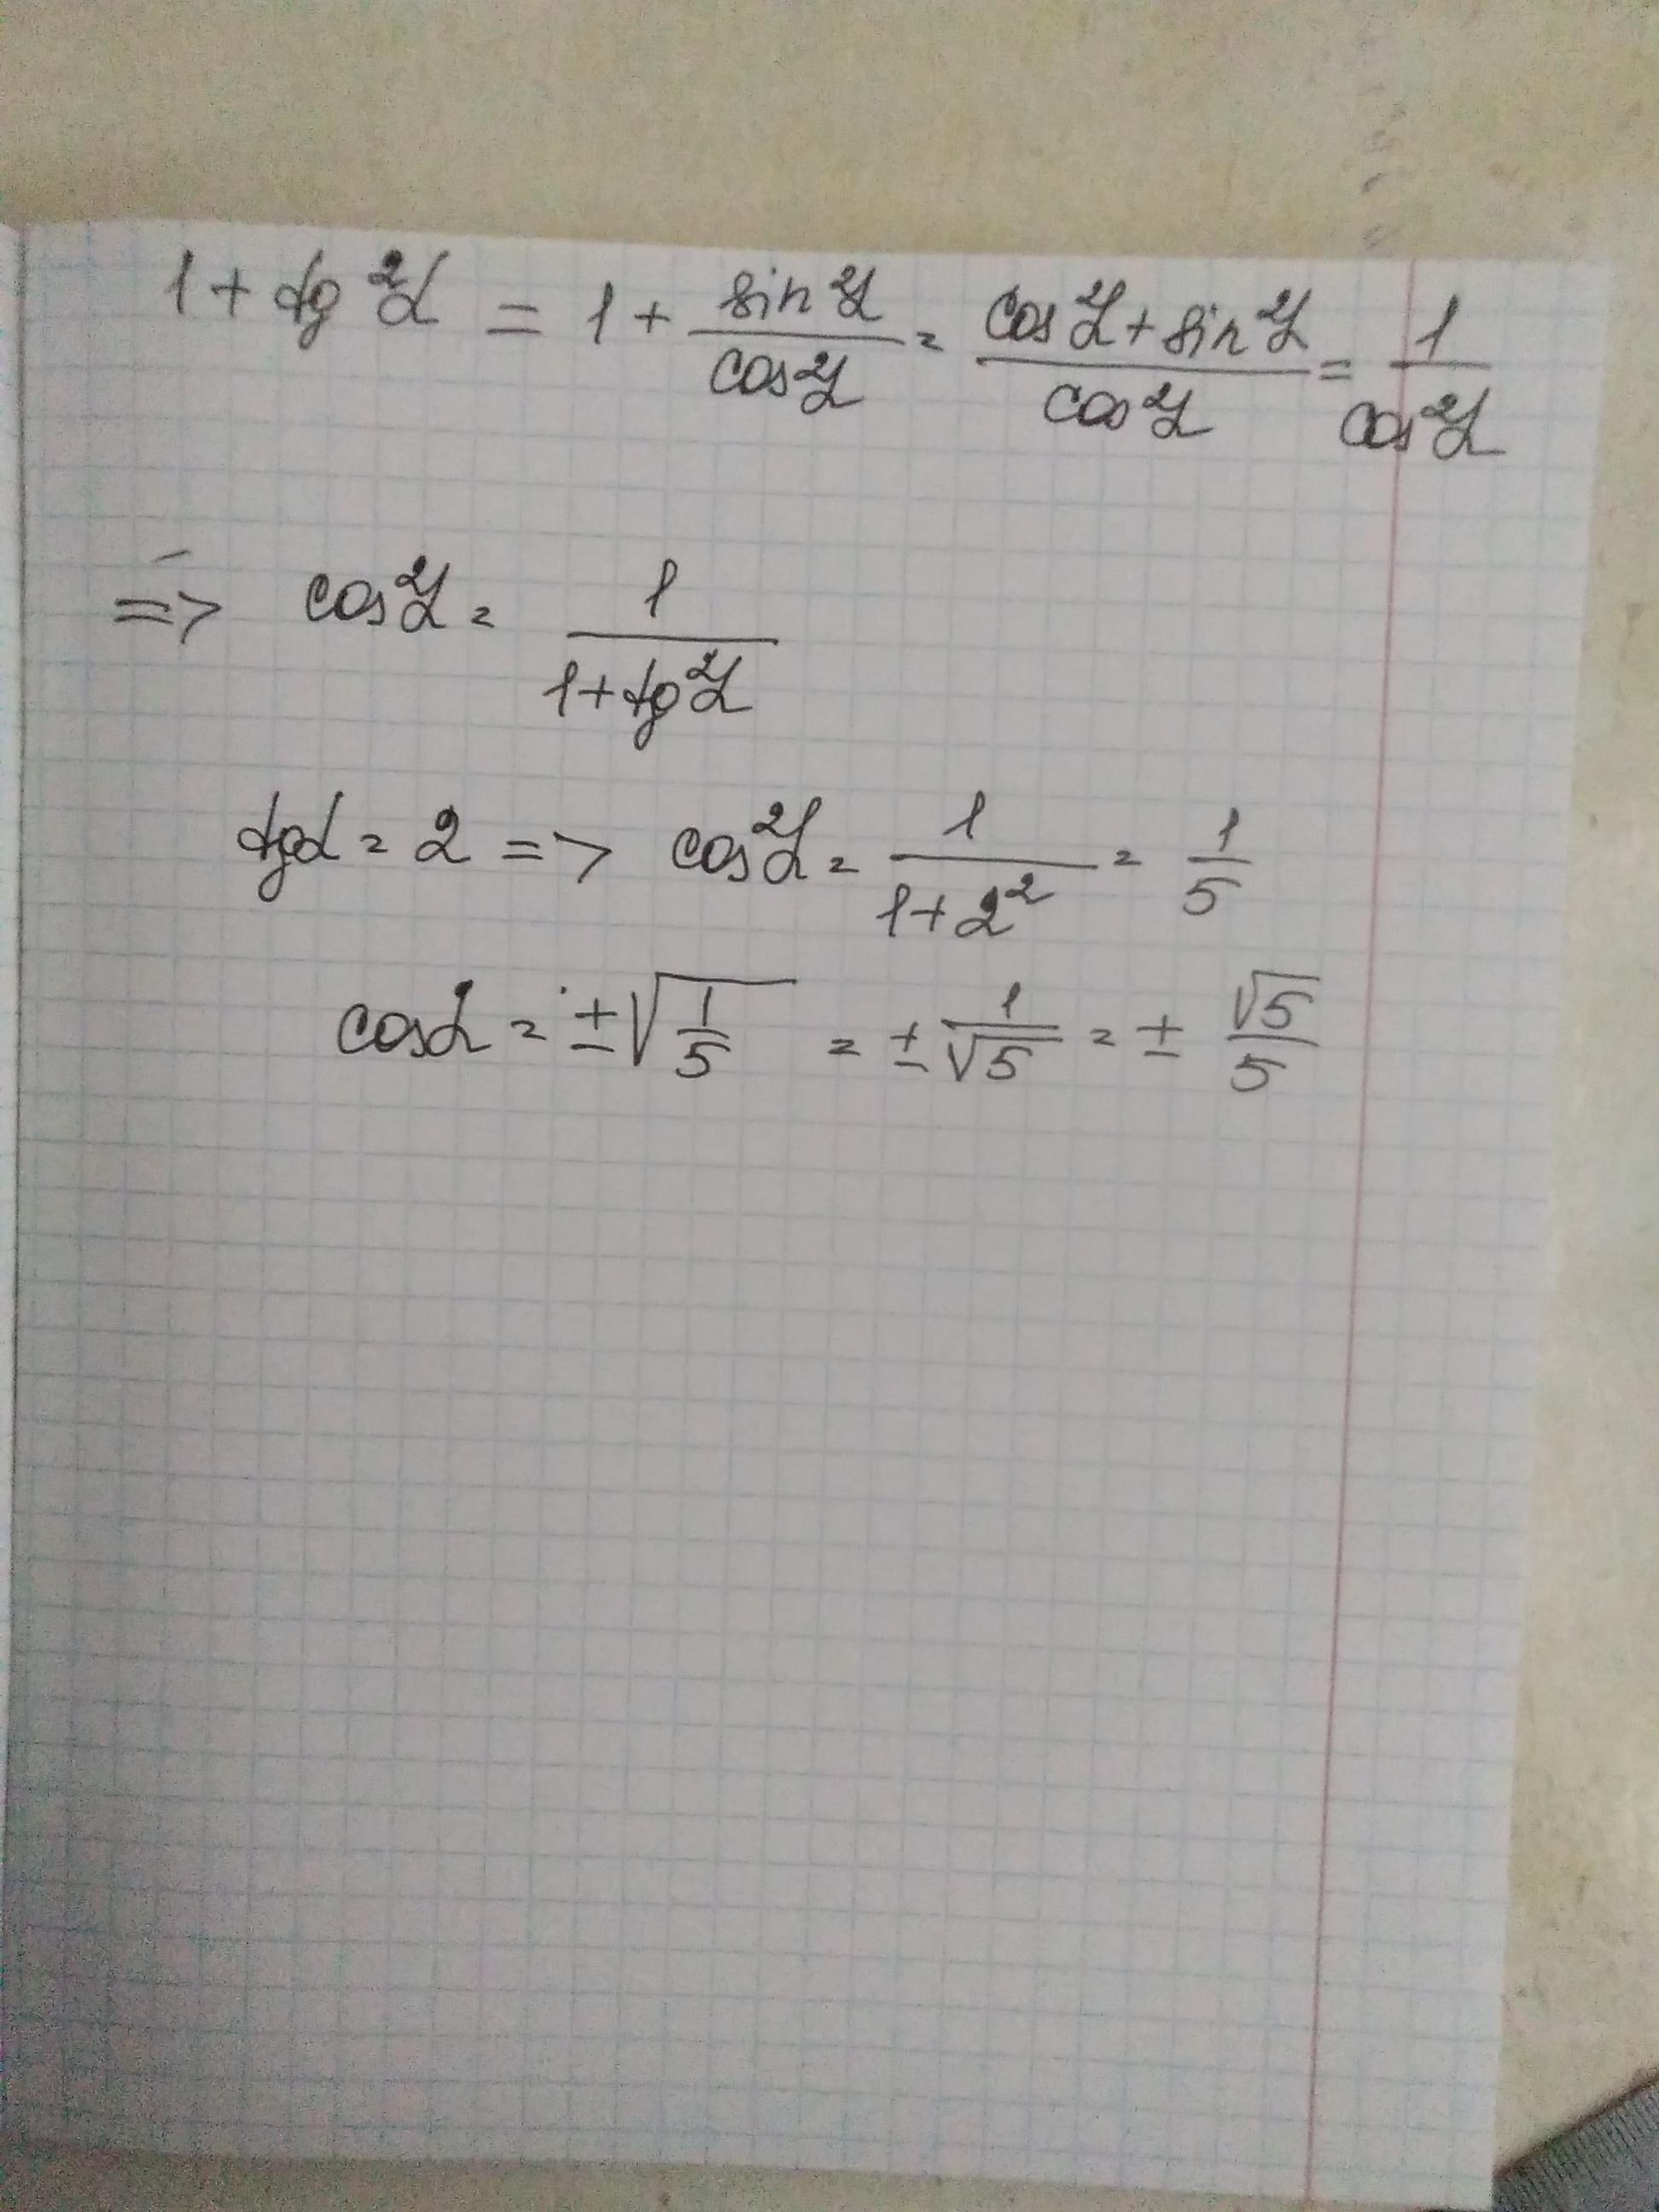 1 + tg²α = 1 + sin²α/cos²α = (cos²α + sin²α)/cos²α = 1/cos²α
=> cos²α = 1/(1+tg²α)
tgα = 2 => cos²α = 1/(1+2²) = 1/5
cosα = ±√(1/5) = ± 1/√5 = ± √5/5